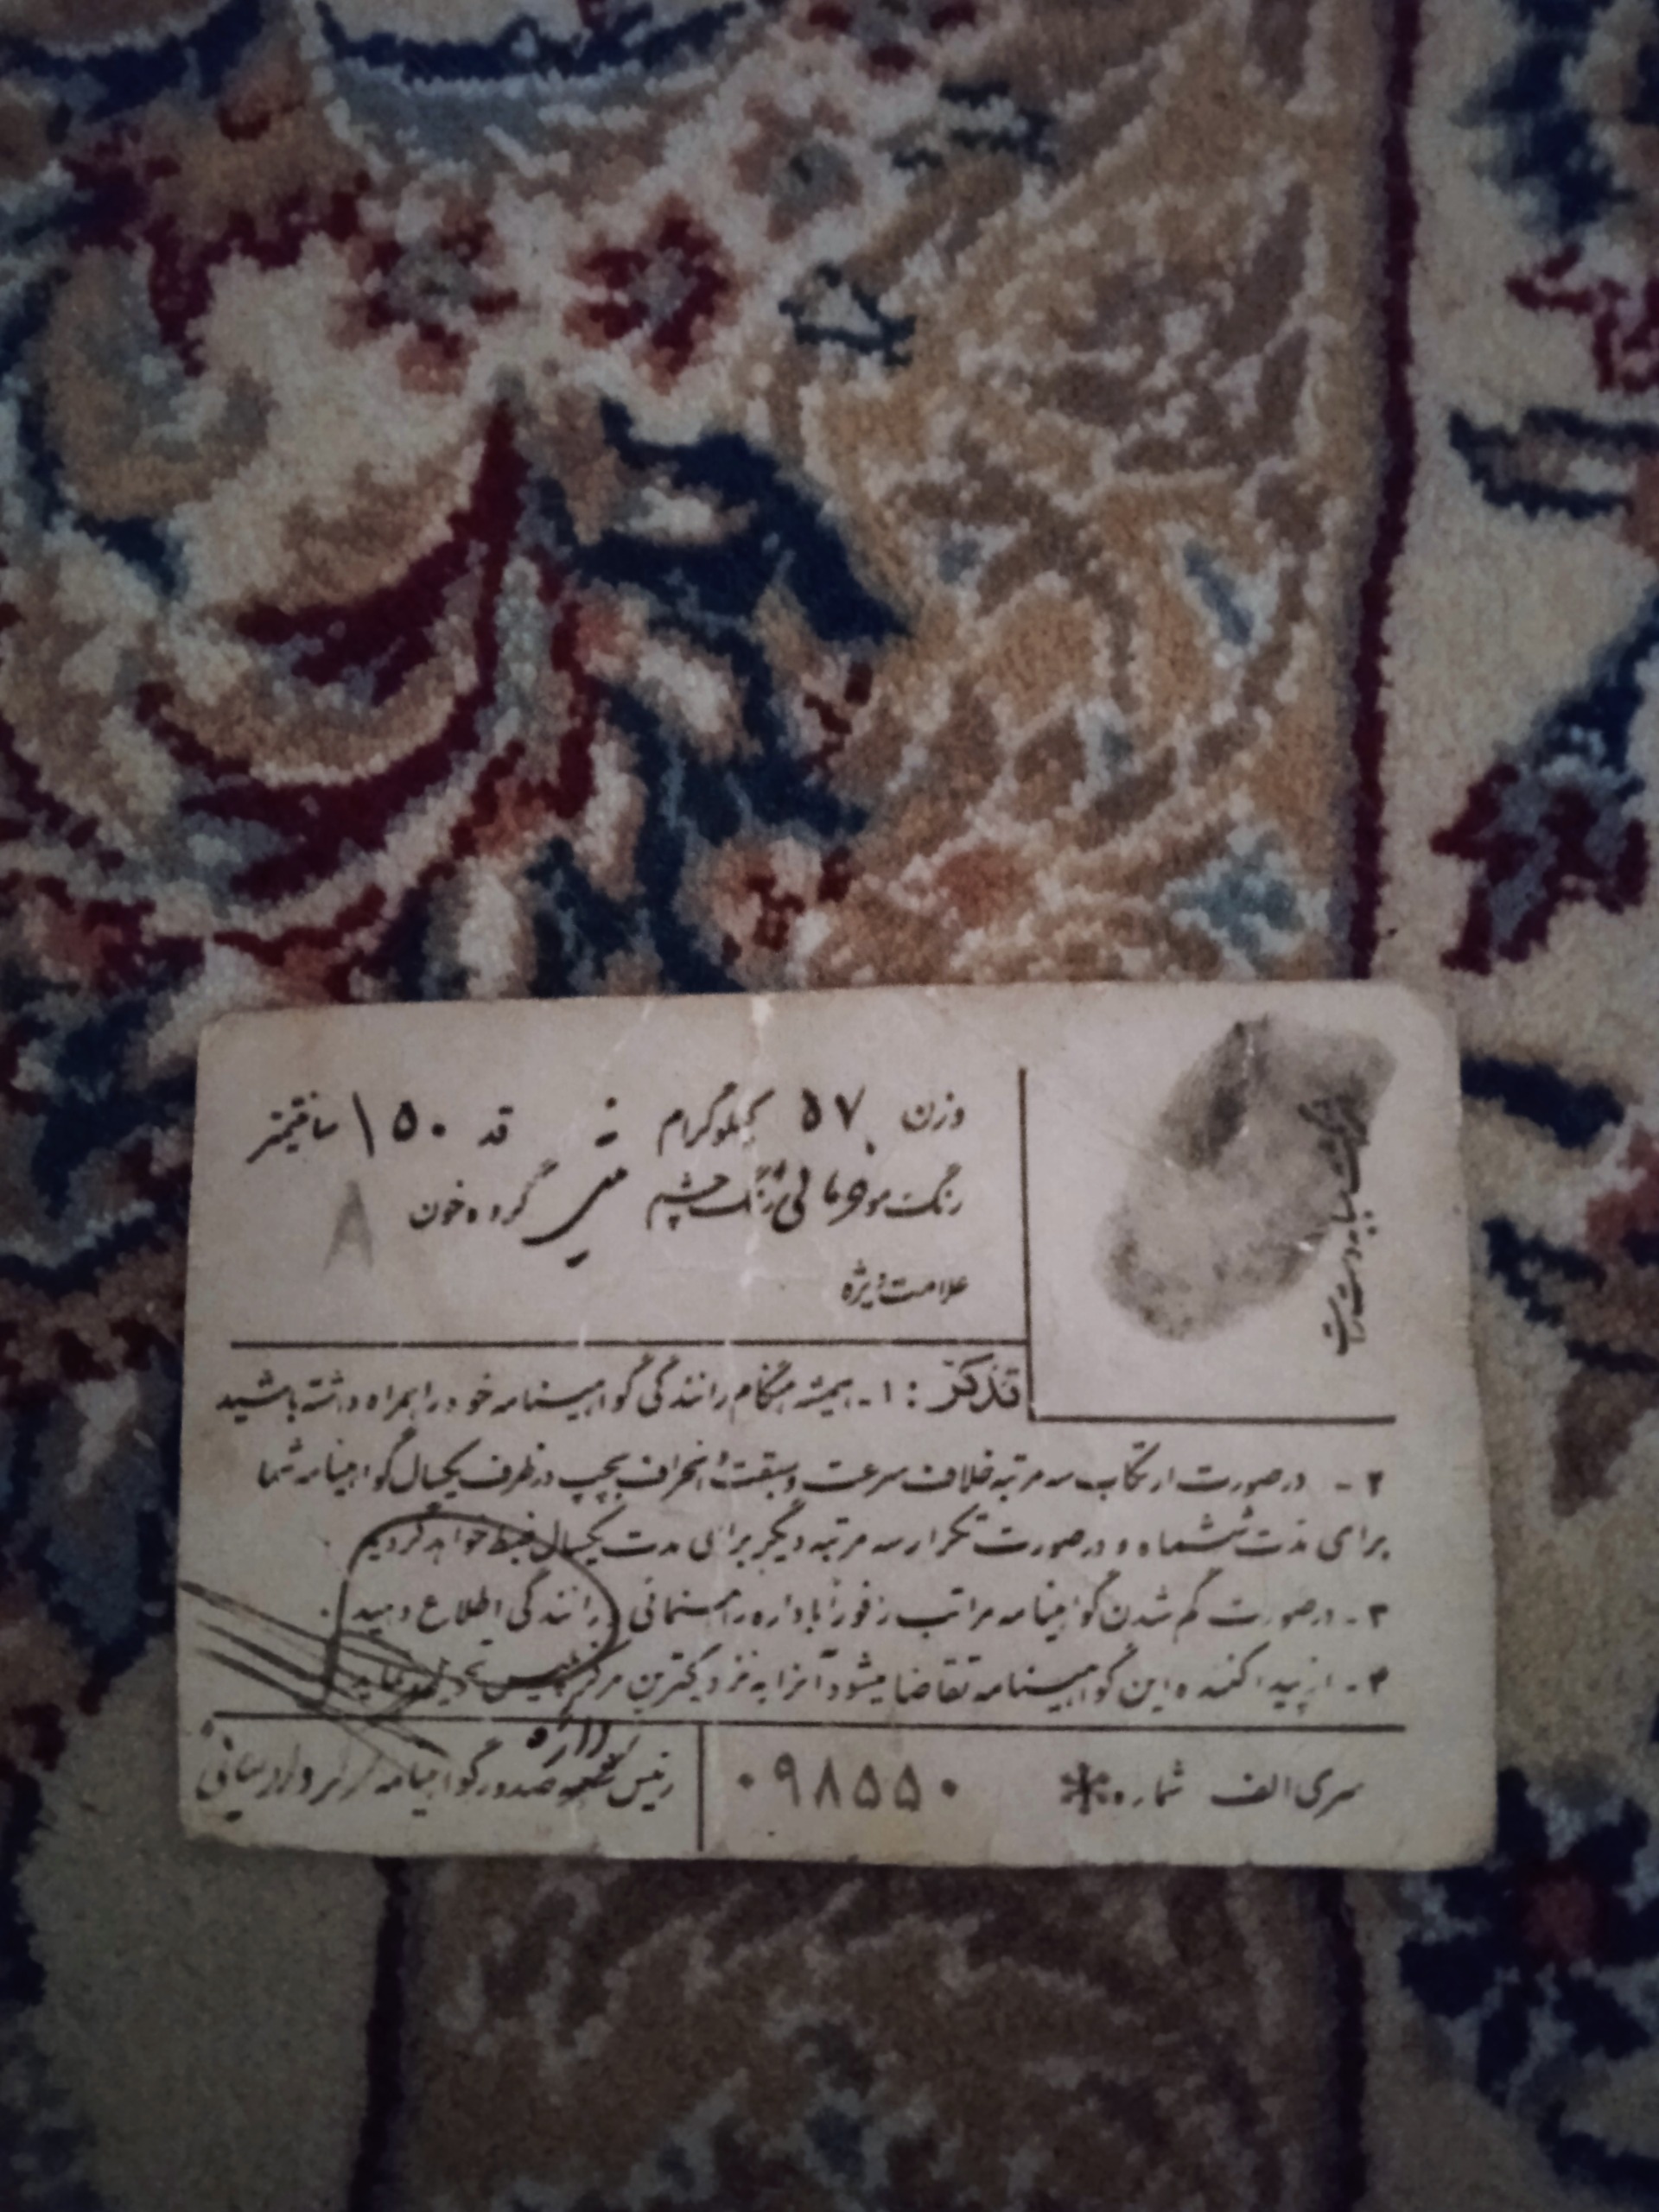 وزن ۵۷ کیلوگرم قد ۱۵۰ سانتیمتر
رنگ مو خرمائی رنگ چشم میشی گروه خون A
علامت ویژه
انگشت سبابه دست راست
تذکر : ۱ - همیشه هنگام رانندگی گواهینامه خود را همراه داشته باشید
۲ - درصورت ارتکاب سه مرتبه خلاف سرعت و سبقت و انحراف بچپ در ظرف یکسال گواهینامه شما
برای مدت ششماه و درصورت تکرار سه مرتبه دیگر برای مدت یکسال ضبط خواهد گردید .
۳ - درصورت گم شدن گواهینامه مراتب را فوراً باداره راهنمائی و رانندگی اطلاع دهید .
۴ - از پیدا کننده این گواهینامه تقاضا میشود آنرا به نزدیکترین مرکز پلیس تحویل نماید
سری الف شماره * ۰۹۸۵۵۰
رئیس صدور گواهینامه